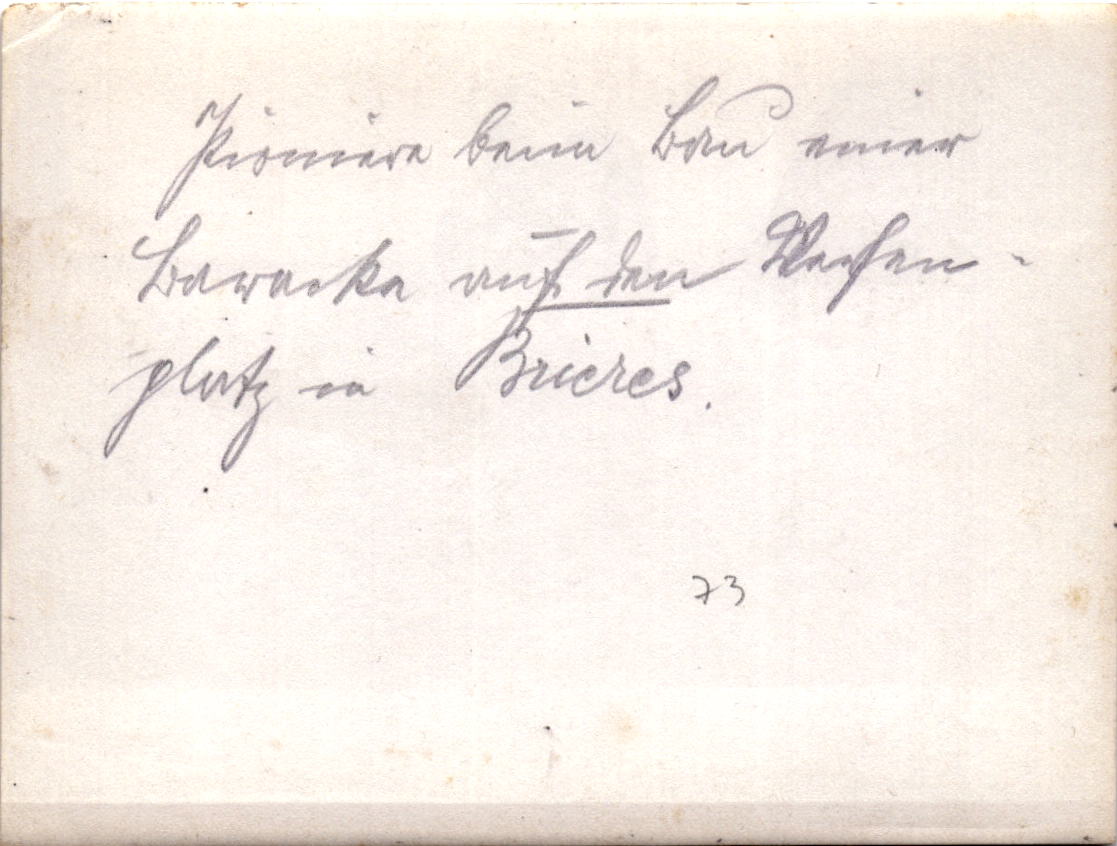 Pioniere beim Bau einer
Baracke auf den
platz in Brieres.
73